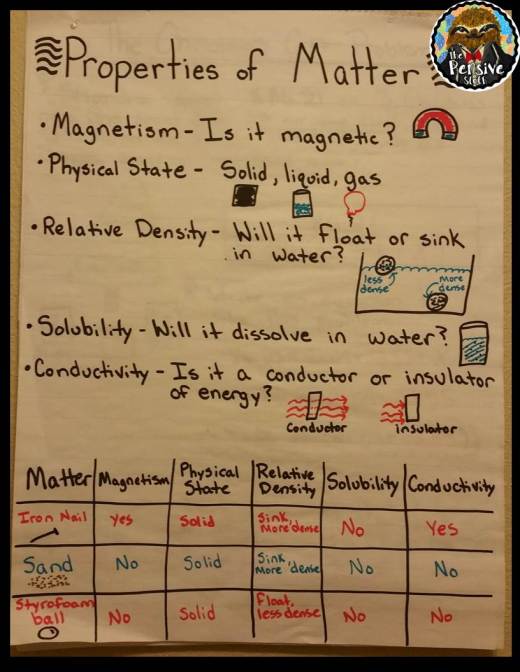 Properties of Matter
The
Pensive
Sloth
• Magnetism - Is it magnetic?
• Physical State - Solid, liquid, gas
• Relative Density - Will it float or sink
in water?
less
dense
more
dense
• Solubility - Will it dissolve in water?
• Conductivity - Is it a conductor or insulator
of energy?
Conductor insulator
Matter Magnetism Physical State Relative Density Solubility Conductivity
Iron Nail Yes Solid Sink, More dense No Yes
Sand No Solid Sink, More dense No No
Styrofoam ball No Solid Float, less dense No No